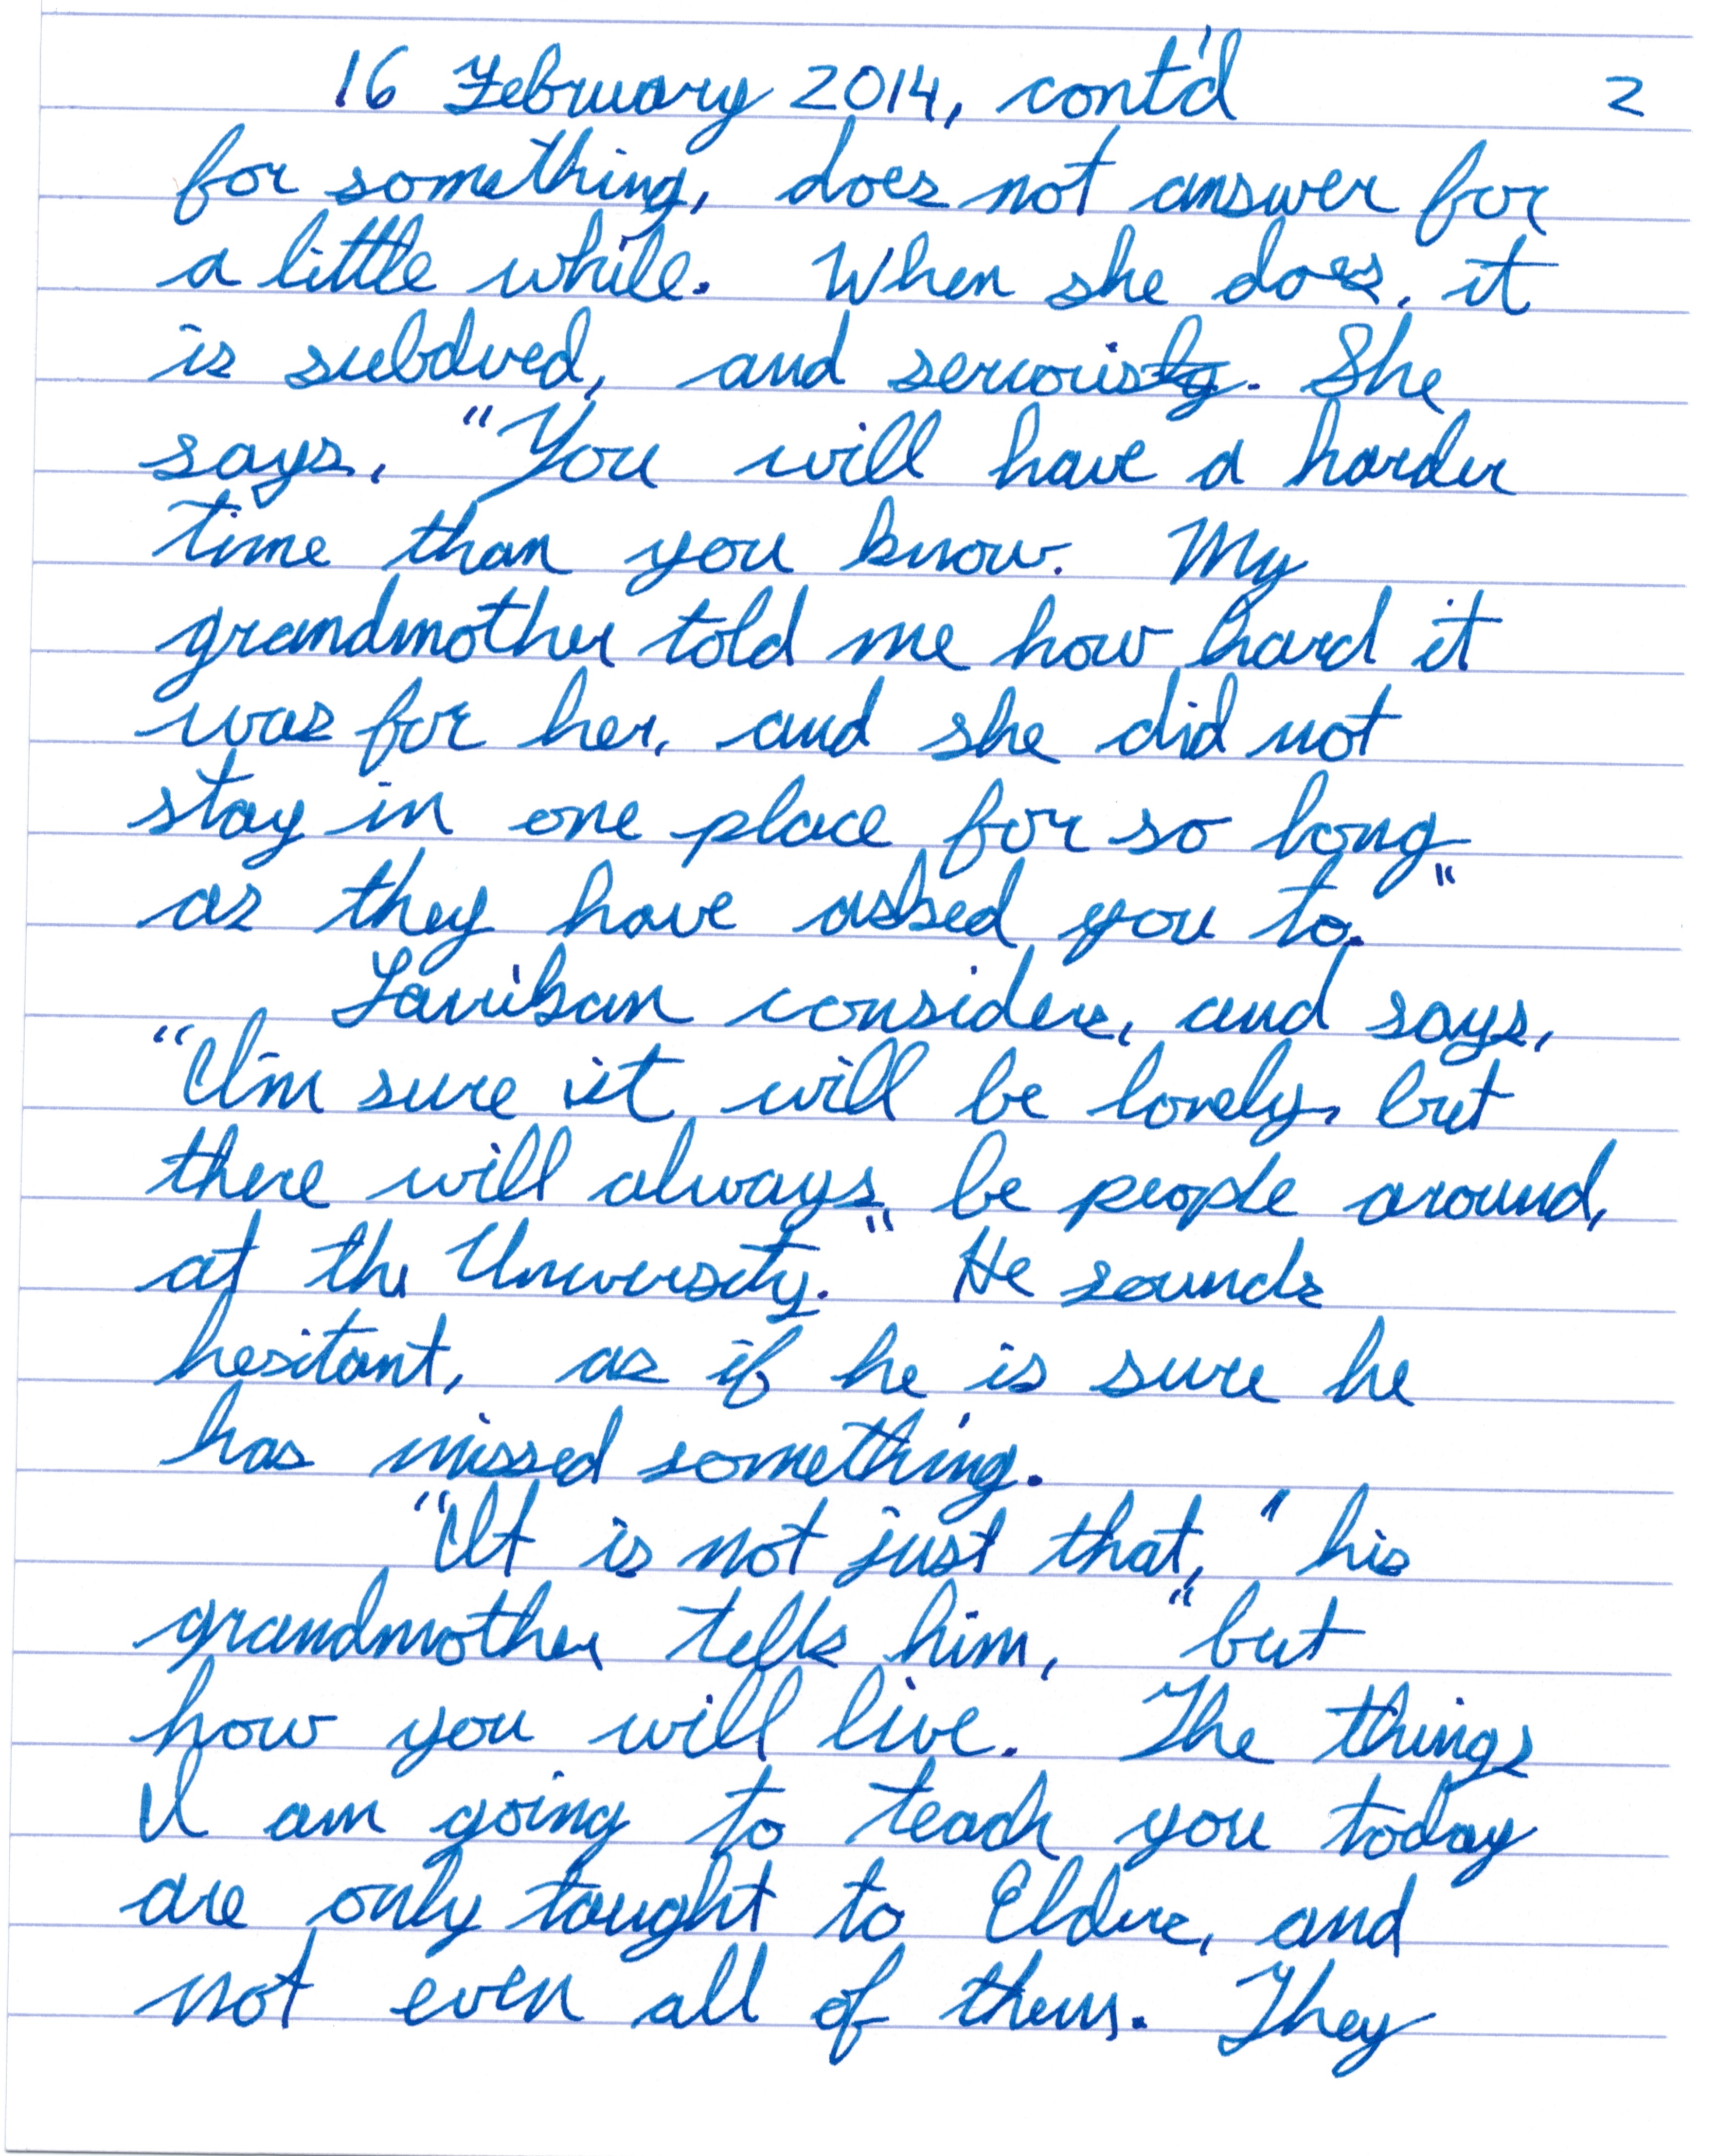 16 February 2014, cont'd 2
for something, does not answer for
a little while. When she does, it
is subdued, and serious. She
says, "You will have a harder
time than you know. My
grandmother told me how hard it
was for her, and she did not
stay in one place for so long
as they have asked you to."
considers, and says,
"I'm sure it will be lonely, but
there will always be people around,
at the University." He sounds
hesitant, as if he is sure he
has missed something.
"It is not just that," his
grandmother tells him, "but
how you will live. The things
I am going to teach you today
are only taught to Elders, and
not even all of them. They